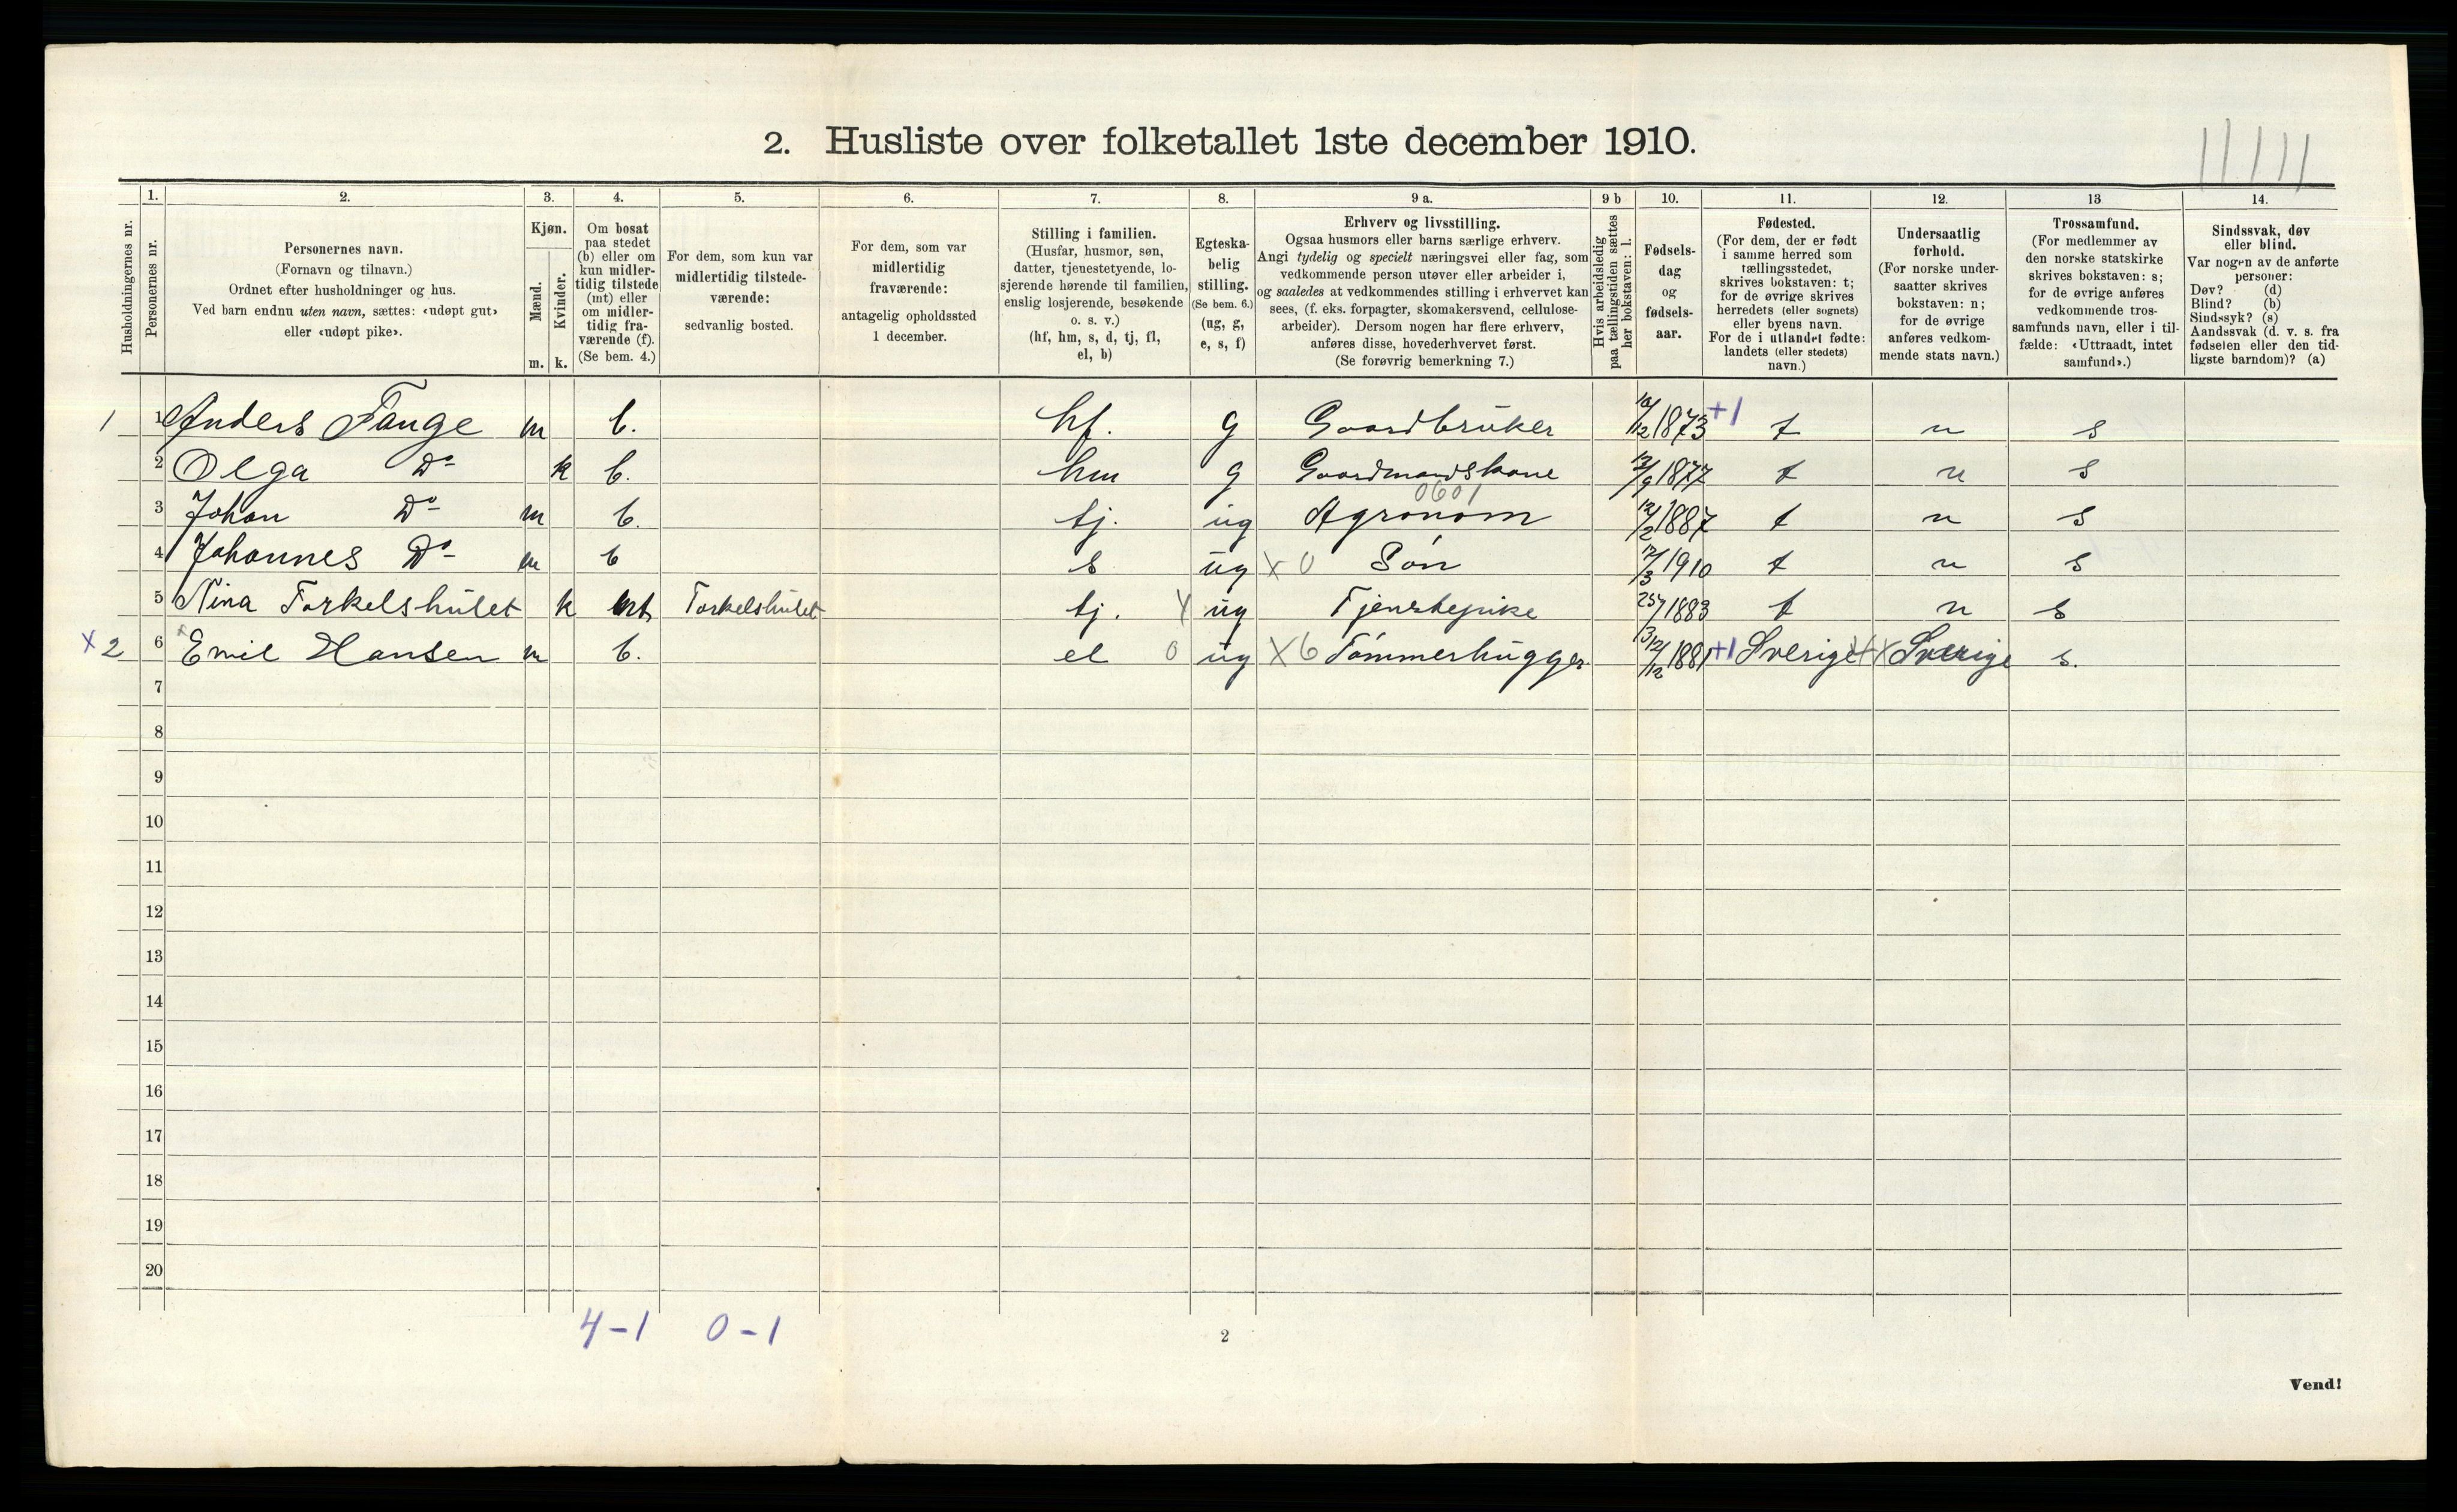 2. Husliste over folketallet 1ste december 1910.
1. 2. 3. 4. 5. 6. 7. 8. 9 a. 9 b 10. 11. 12. 13 14.
Husholdningernes nr.
Personernes nr.
Personernes navn.
(Fornavn og tilnavn.)
Ordnet efter husholdninger og hus.
Ved barn endnu uten navn, sættes: «udøpt gut»
eller «udøpt pike».
Kjøn.
Mænd.
Kvinder.
m. k.
Om bosat
paa stedet
(b) eller om
kun midler-
tidig tilstede
(mt) eller
om midler-
tidig fra-
værende (f).
(Se bem. 4.)
For dem, som kun var
midlertidig tilstede-
værende:
sedvanlig bosted.
For dem, som var
midlertidig
fraværende:
antagelig opholdssted
1 december.
Stilling i familien.
(Husfar, husmor, søn,
datter, tjenestetyende, lo-
sjerende hørende til familien,
enslig losjerende, besøkende
o. s. v.)
(hf, hm, s, d, tj, fl,
el, b)
Egteska-
belig
stilling.
(Se bem. 6.)
(ug, g,
e, s, f)
Erhverv og livsstilling.
Ogsaa husmors eller barns særlige erhverv.
Angi tydelig og specielt næringsvei eller fag, som
vedkommende person utøver eller arbeider i,
og saaledes at vedkommendes stilling i erhvervet kan
sees, (f. eks. forpagter, skomakersvend, cellulose-
arbeider). Dersom nogen har flere erhverv,
anføres disse, hovederhvervet først.
(Se forøvrig bemerkning 7.)
Hvis arbeidsledig
paa tællingstiden sættes
her bokstaven: l.
Fødsels-
dag
og
fødsels-
aar.
Fødested.
(For dem, der er født
i samme herred som
tællingsstedet,
skrives bokstaven: t;
for de øvrige skrives
herredets (eller sognets)
eller byens navn.
For de i utlandet fødte:
landets (eller stedets)
navn.)
Undersaatlig
forhold.
(For norske under-
saatter skrives
bokstaven: n;
for de øvrige
anføres vedkom-
mende stats navn.)
Trossamfund.
(For medlemmer av
den norske statskirke
skrives bokstaven: s;
for de øvrige anføres
vedkommende tros-
samfunds navn, eller i til-
fælde: «Uttraadt, intet
samfund».)
Sindssvak, døv
eller blind.
Var nogen av de anførte
personer:
Døv? (d)
Blind? (b)
Sindssyk? (s)
Aandssvak (d. v. s. fra
fødselen eller den tid-
ligste barndom)? (a)
1 1 Anders Tange m b. hf. g Gaardbruker 1873 +1 t n s
2 Olga Do k b. hm g Gaardmandskone 1877 t n s
0601
3 Johan Do m b. tj. ug Agronom 12/2 1887 t n s
4 Johannes Do m b s ug X 0 Søn 12/3 1910 t n s
5 Nina Torkelshulet k mt Torkelshulet tj. ug Tjenstepike 1883 t n s
X 2 6 Emil Hansen m b. el 0 ug X 6 Tømmerhugger 1881 +1 Sverige Sverige s.
7
8
9
10
11
12
13
14
15
16
17
18
19
20
4-1 0-1
2
Vend!